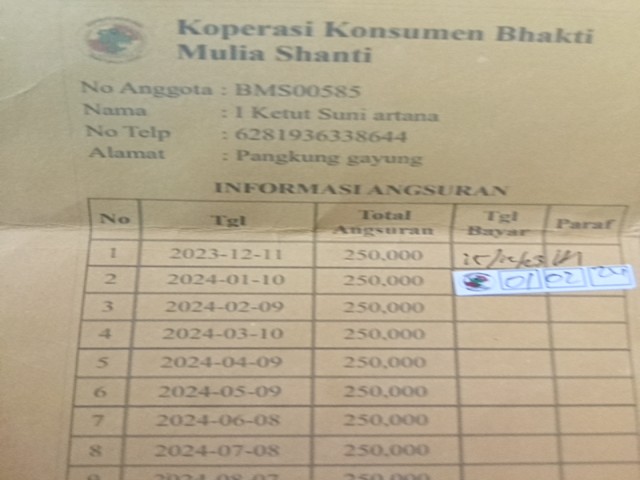 Koperasi Konsumen Bhakti
Mulia Shanti
No Anggota : BMS00585
Nama : I Ketut Suni artana
No Telp : 6281936338644
Alamat : Pangkung gayung
INFORMASI ANGSURAN
No Tgl Total Angsuran Tgl Bayar Paraf
1 2023-12-11 250,000
2 2024-01-10 250,000 01 02 24
3 2024-02-09 250,000
4 2024-03-10 250,000
5 2024-04-09 250,000
6 2024-05-09 250,000
7 2024-06-08 250,000
8 2024-07-08 250,000
9 2024-08-07 250,000